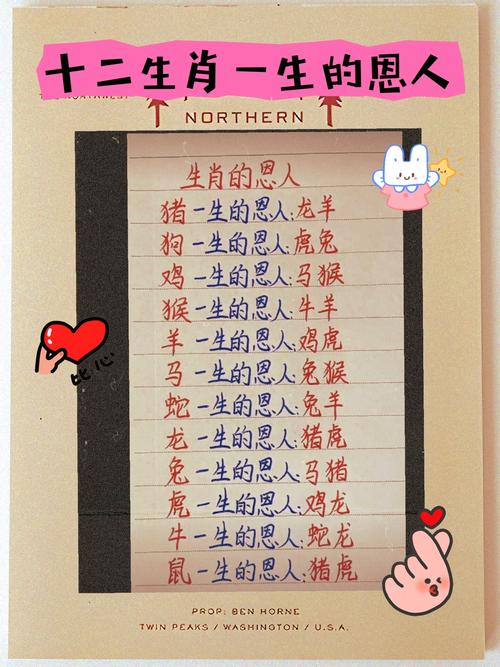 十二生肖一生的恩人
NORTHERN
生肖的恩人
猪一生的恩人:龙羊
狗一生的恩人:虎兔
鸡一生的恩人:马猴
猴一生的恩人:牛羊
羊一生的恩人:鸡虎
马一生的恩人:兔猴
蛇一生的恩人:兔羊
龙一生的恩人:猪虎
兔一生的恩人:马猪
虎一生的恩人:鸡龙
牛一生的恩人:蛇龙
鼠一生的恩人:猪虎
比心
PROP: BEN HORNE
TWIN PEAKS / WASHINGTON / U.S.A.